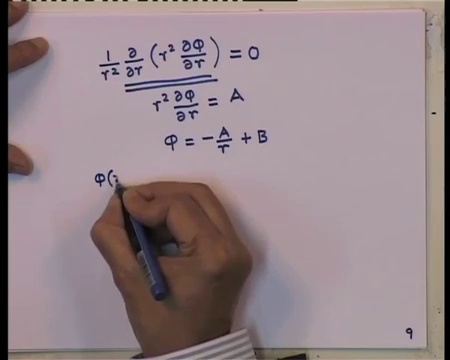 1/r² ∂/∂r (r² ∂φ/∂r) = 0
r² ∂φ/∂r = A
φ = - A/r + B
φ(
9